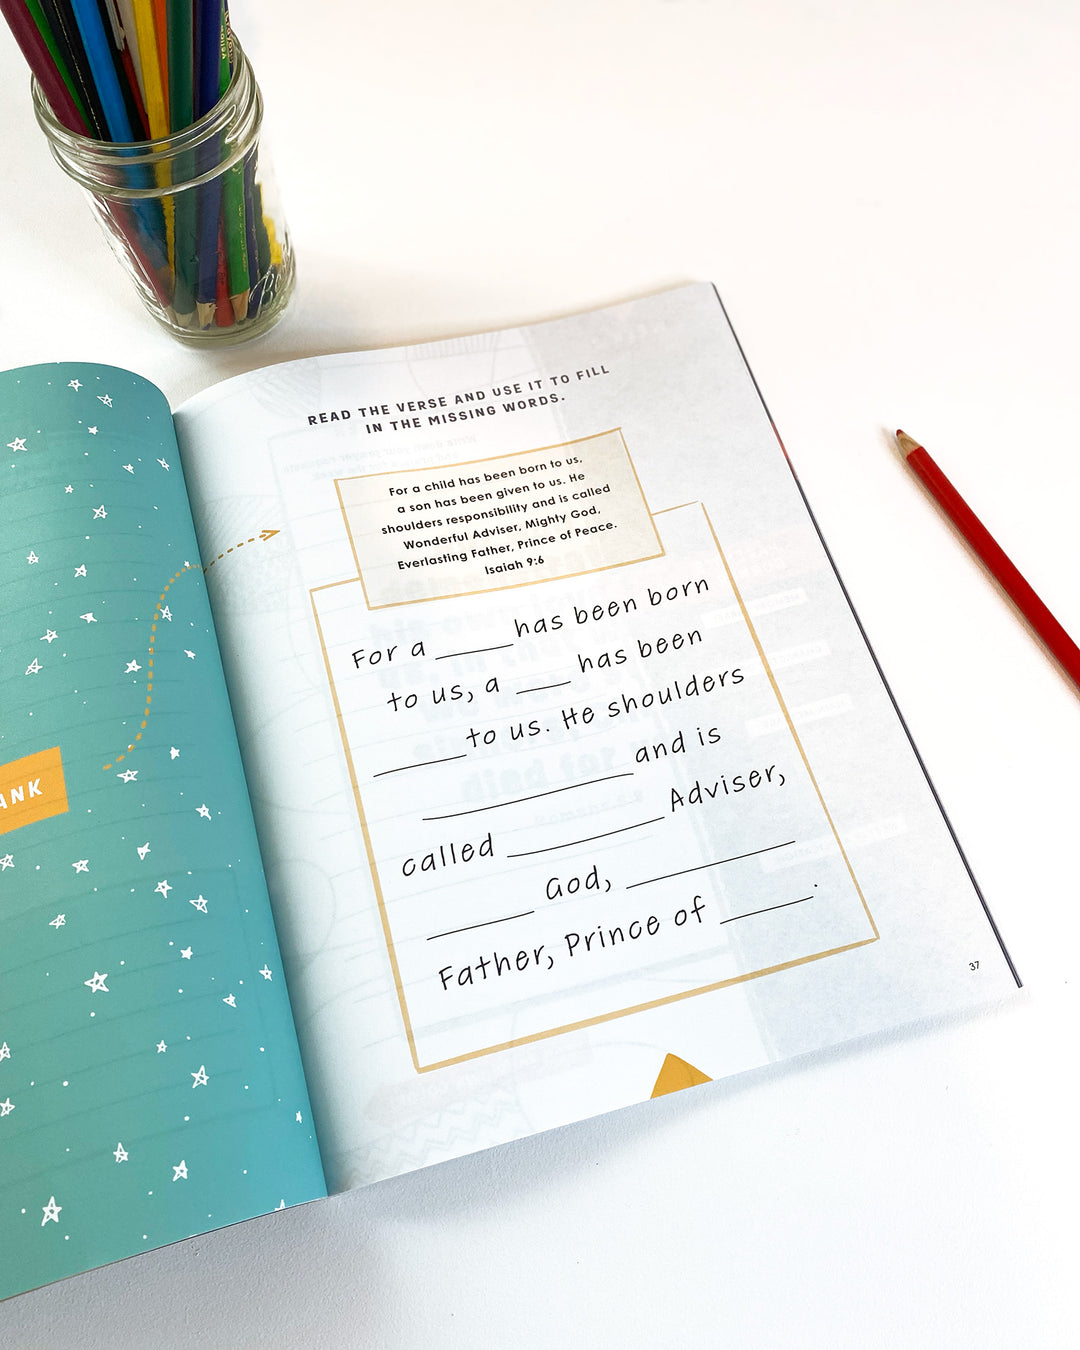 READ THE VERSE AND USE IT TO FILL
IN THE MISSING WORDS.
For a child has been born to us,
a son has been given to us. He
shoulders responsibility and is called
Wonderful Adviser, Mighty God,
Everlasting Father, Prince of Peace.
Isaiah 9:6
For a ______ has been born
to us, a ____ has been
_______ to us. He shoulders
________________ and is
called ____________ Adviser,
________ God, _____________
Father, Prince of _______.
37
ANK